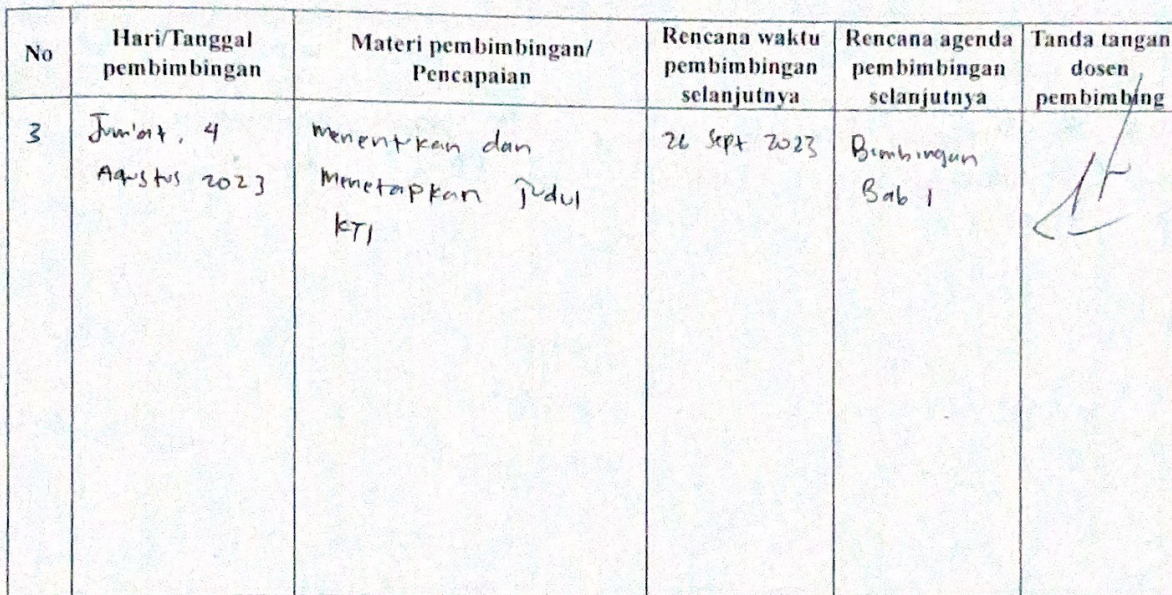 No
Hari/Tanggal
pembimbingan
Materi pembimbingan/
Pencapaian
Rencana waktu
pembimbingan
selanjutnya
Rencana agenda
pembimbingan
selanjutnya
Tanda tangan
dosen
pembimbing
3
Jum'at, 4
Agustus 2023
Menentkan dan
Menetapkan judul
KTI
26 Sept 2023
Bimbingan
Bab 1